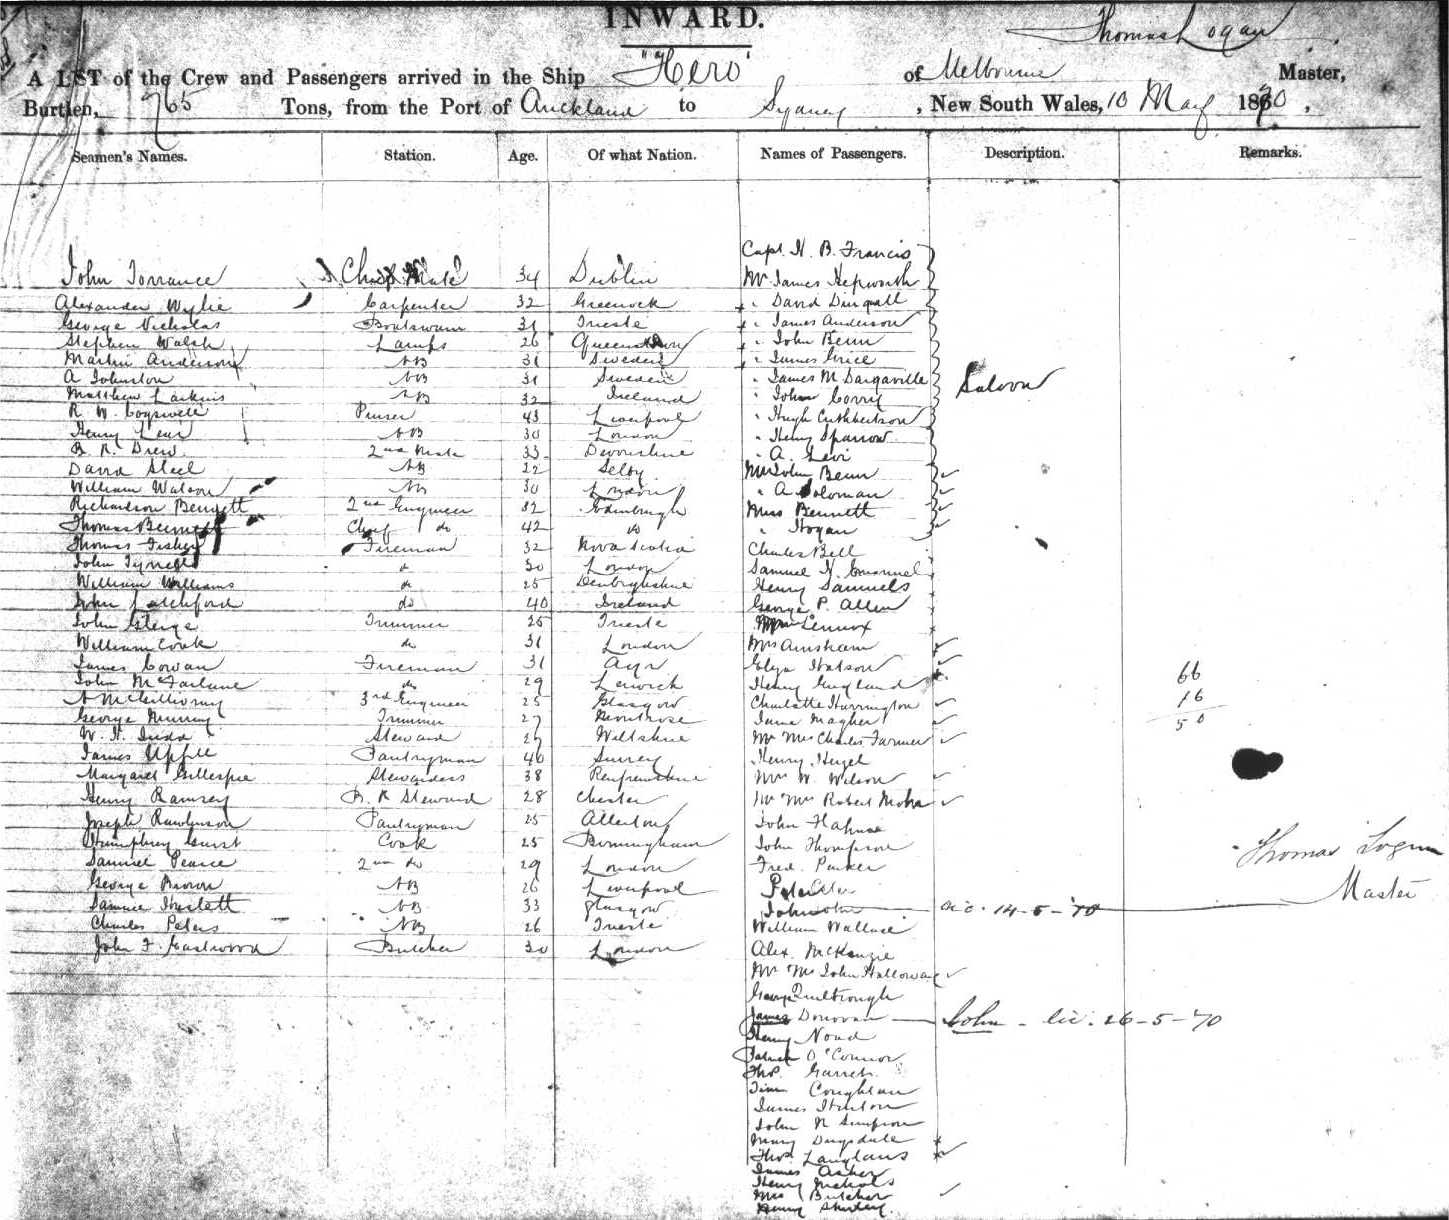 INWARD.
Thomas Logan
A LIST of the Crew and Passengers arrived in the Ship "Hero" of Melbourne Master,
Burthen, 765 Tons, from the Port of Auckland to Sydney, New South Wales, 10 May 1870,
Seamen's Names. Station. Age. Of what Nation. Names of Passengers. Description. Remarks.
Capt. H. B. Francis
John Torrance Chief Mate 34 Dublin Mr James Hepworth
Alexander Wylie Carpenter 32 Greenock " David Dingwall
George Nicholas Boatswain 31 Trieste " James Anderson
Stephen Walsh Lamps 26 Queenstown " John Benn
Martin Anderson AB 31 Sweden " James Grice
A Johnston AB 31 Sweden " James M Dargaville Saloon
Matthew Larkins AB 32 Ireland " John Corry
R. W. Cogswell Purser 43 Liverpool " Hugh Cuthbertson
Henry Lear AB 30 London " Henry Sparrow
R. R. Drew 2nd Mate 33 Devonshire " A. Levi
David Steel AB 22 Selby Mrs John Benn
William Watson AB 30 London " A Soloman
Richardson Bennett 2nd Engineer 32 Edinburgh Miss Bennett
Thomas Bennett Chief do 42 do " Hogan
Thomas Fisher Fireman 32 Nova Scotia Charles Bell
John Tyrrell do 30 London Samuel H. Emanuel
William Williams do 25 Denbighshire Henry Samuels
John Latchford do 40 Ireland George P. Allen
John George Trimmer 25 Trieste Lennox
William Cook do 31 London Mrs Ainsham
James Cowan Fireman 31 Ayr Eliza Watson
John McFarlane do 29 Lerwick Henry England 66
A McGillivray 3rd Engineer 25 Glasgow Charlotte Harrington 16
George Murray Trimmer 27 Montrose Jane Magher 50
W. H. Judd Steward 29 Wiltshire Mr Mrs Charles Farmer
James Upfle Pantryman 40 Surrey Henry Hegel
Margaret Gillespie Stewardess 38 Renfrewshire Mrs W. Wilson
Henry Ramsey B. R Steward 28 Chester Mr Mrs Robert
Joseph Rawlinson Pantryman 25 Allerton John
Humphrey Hurst Cook 25 Birmingham John Thompson
Thomas Logan
Samuel Pearce 2nd do 29 London Fred. Parker
George Brown AB 26 Liverpool Peter
Master
Samuel Haslett AB 33 Glasgow John 14-5-'70
Charles Peters AB 26 Trieste William Wallace
John F. Eastwood Butcher 30 London Alex. McKenzie
Mr Mrs John Halloway
George Quilbrough
James Donovan John - lic. 26-5-'70
Henry Noad
Patrick O'Connor
Thos. Garrett
Tim Coughlan
James
John N Simpson
Mary Drysdale
Thos Langlans
James Asher
Henry Nichols
Mrs Butcher
Henry